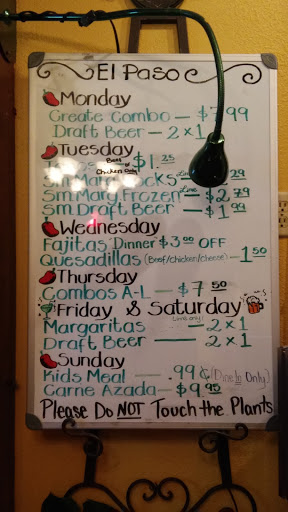 El Paso
Monday
Create Combo - $7.99
Draft Beer - 2x1
Tuesday
Beef or Chicken Only $1.25
Sm Marg. Rocks Lime 29
Sm Marg. Frozen - Lime $2.79
Sm. Draft Beer - $1.99
Wednesday
Fajitas Dinner $3.00 OFF
Quesadillas (Beef/chicken/cheese) - 1.50
Thursday
Combos A-L - $7.50
Friday & Saturday
Margaritas Lime only - 2x1
Draft Beer - 2x1
Sunday
Kids Meal - .99¢ (Dine In Only)
Carne Azada - $9.95
Please Do NOT Touch the Plants